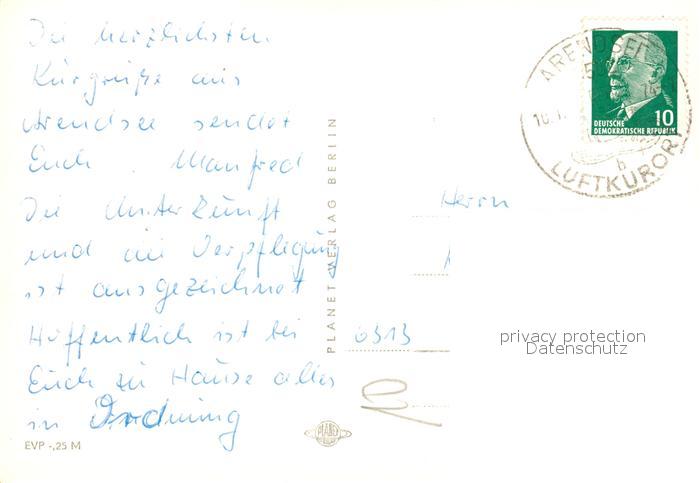 Die herzlichsten
Kurgrüße aus
Arendsee sendet
Euch . Manfred
Die Unterkunft
und die Verpflegung
ist ausgezeichnet
Hoffentlich ist bei
Euch zu Hause alles
in Ordnung
EVP -,25 M
PLANET-VERLAG BERLIN
PLANET
Herrn
0313
ARENDSEE
10.
b
LUFTKURORT
10
DEUTSCHE
DEMOKRATISCHE REPUBLIK
privacy protection
Datenschutz